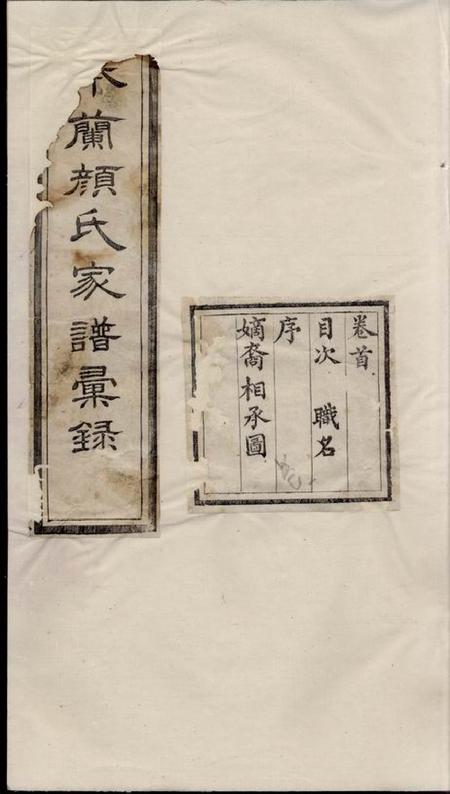 蘭顔氏家譜彙録
卷首
目次 職名
序
嫡裔相承圖